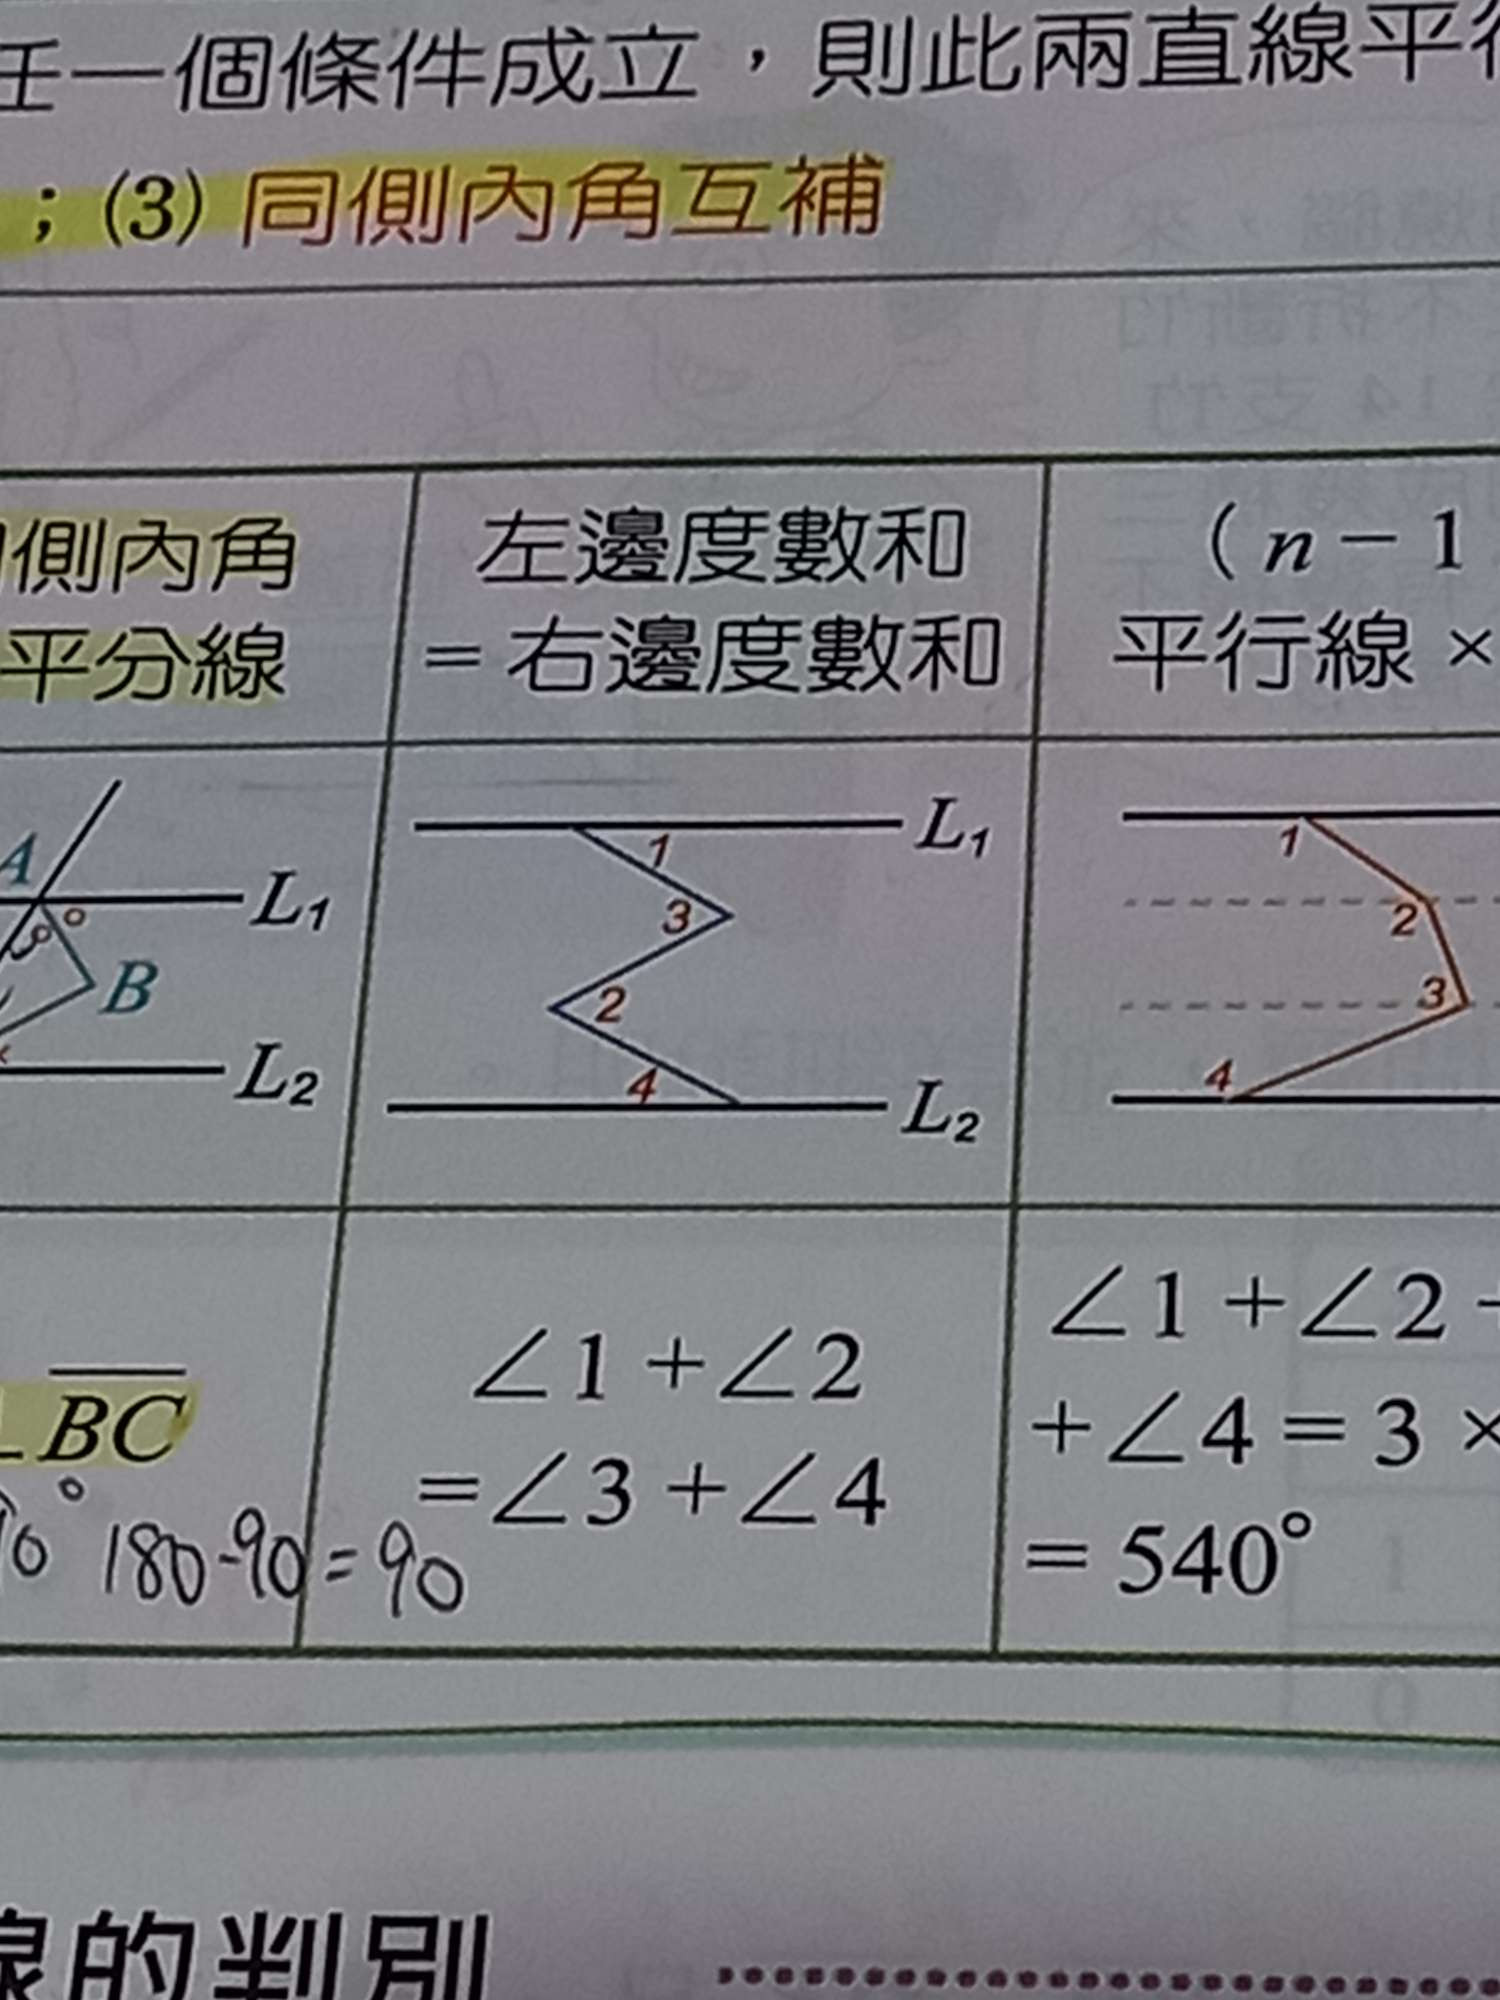 任一個條件成立，則此兩直線平行
；(3) 同側內角互補
同側內角
平分線
左邊度數和
= 右邊度數和
( n − 1
平行線 ×
A
B
L₁
L₂
1
3
2
4
L₁
L₂
1
2
3
4
⊥ BC
180-90=90
∠1 + ∠2
= ∠3 + ∠4
∠1 + ∠2 +
+ ∠4 = 3 ×
= 540°
線的判別